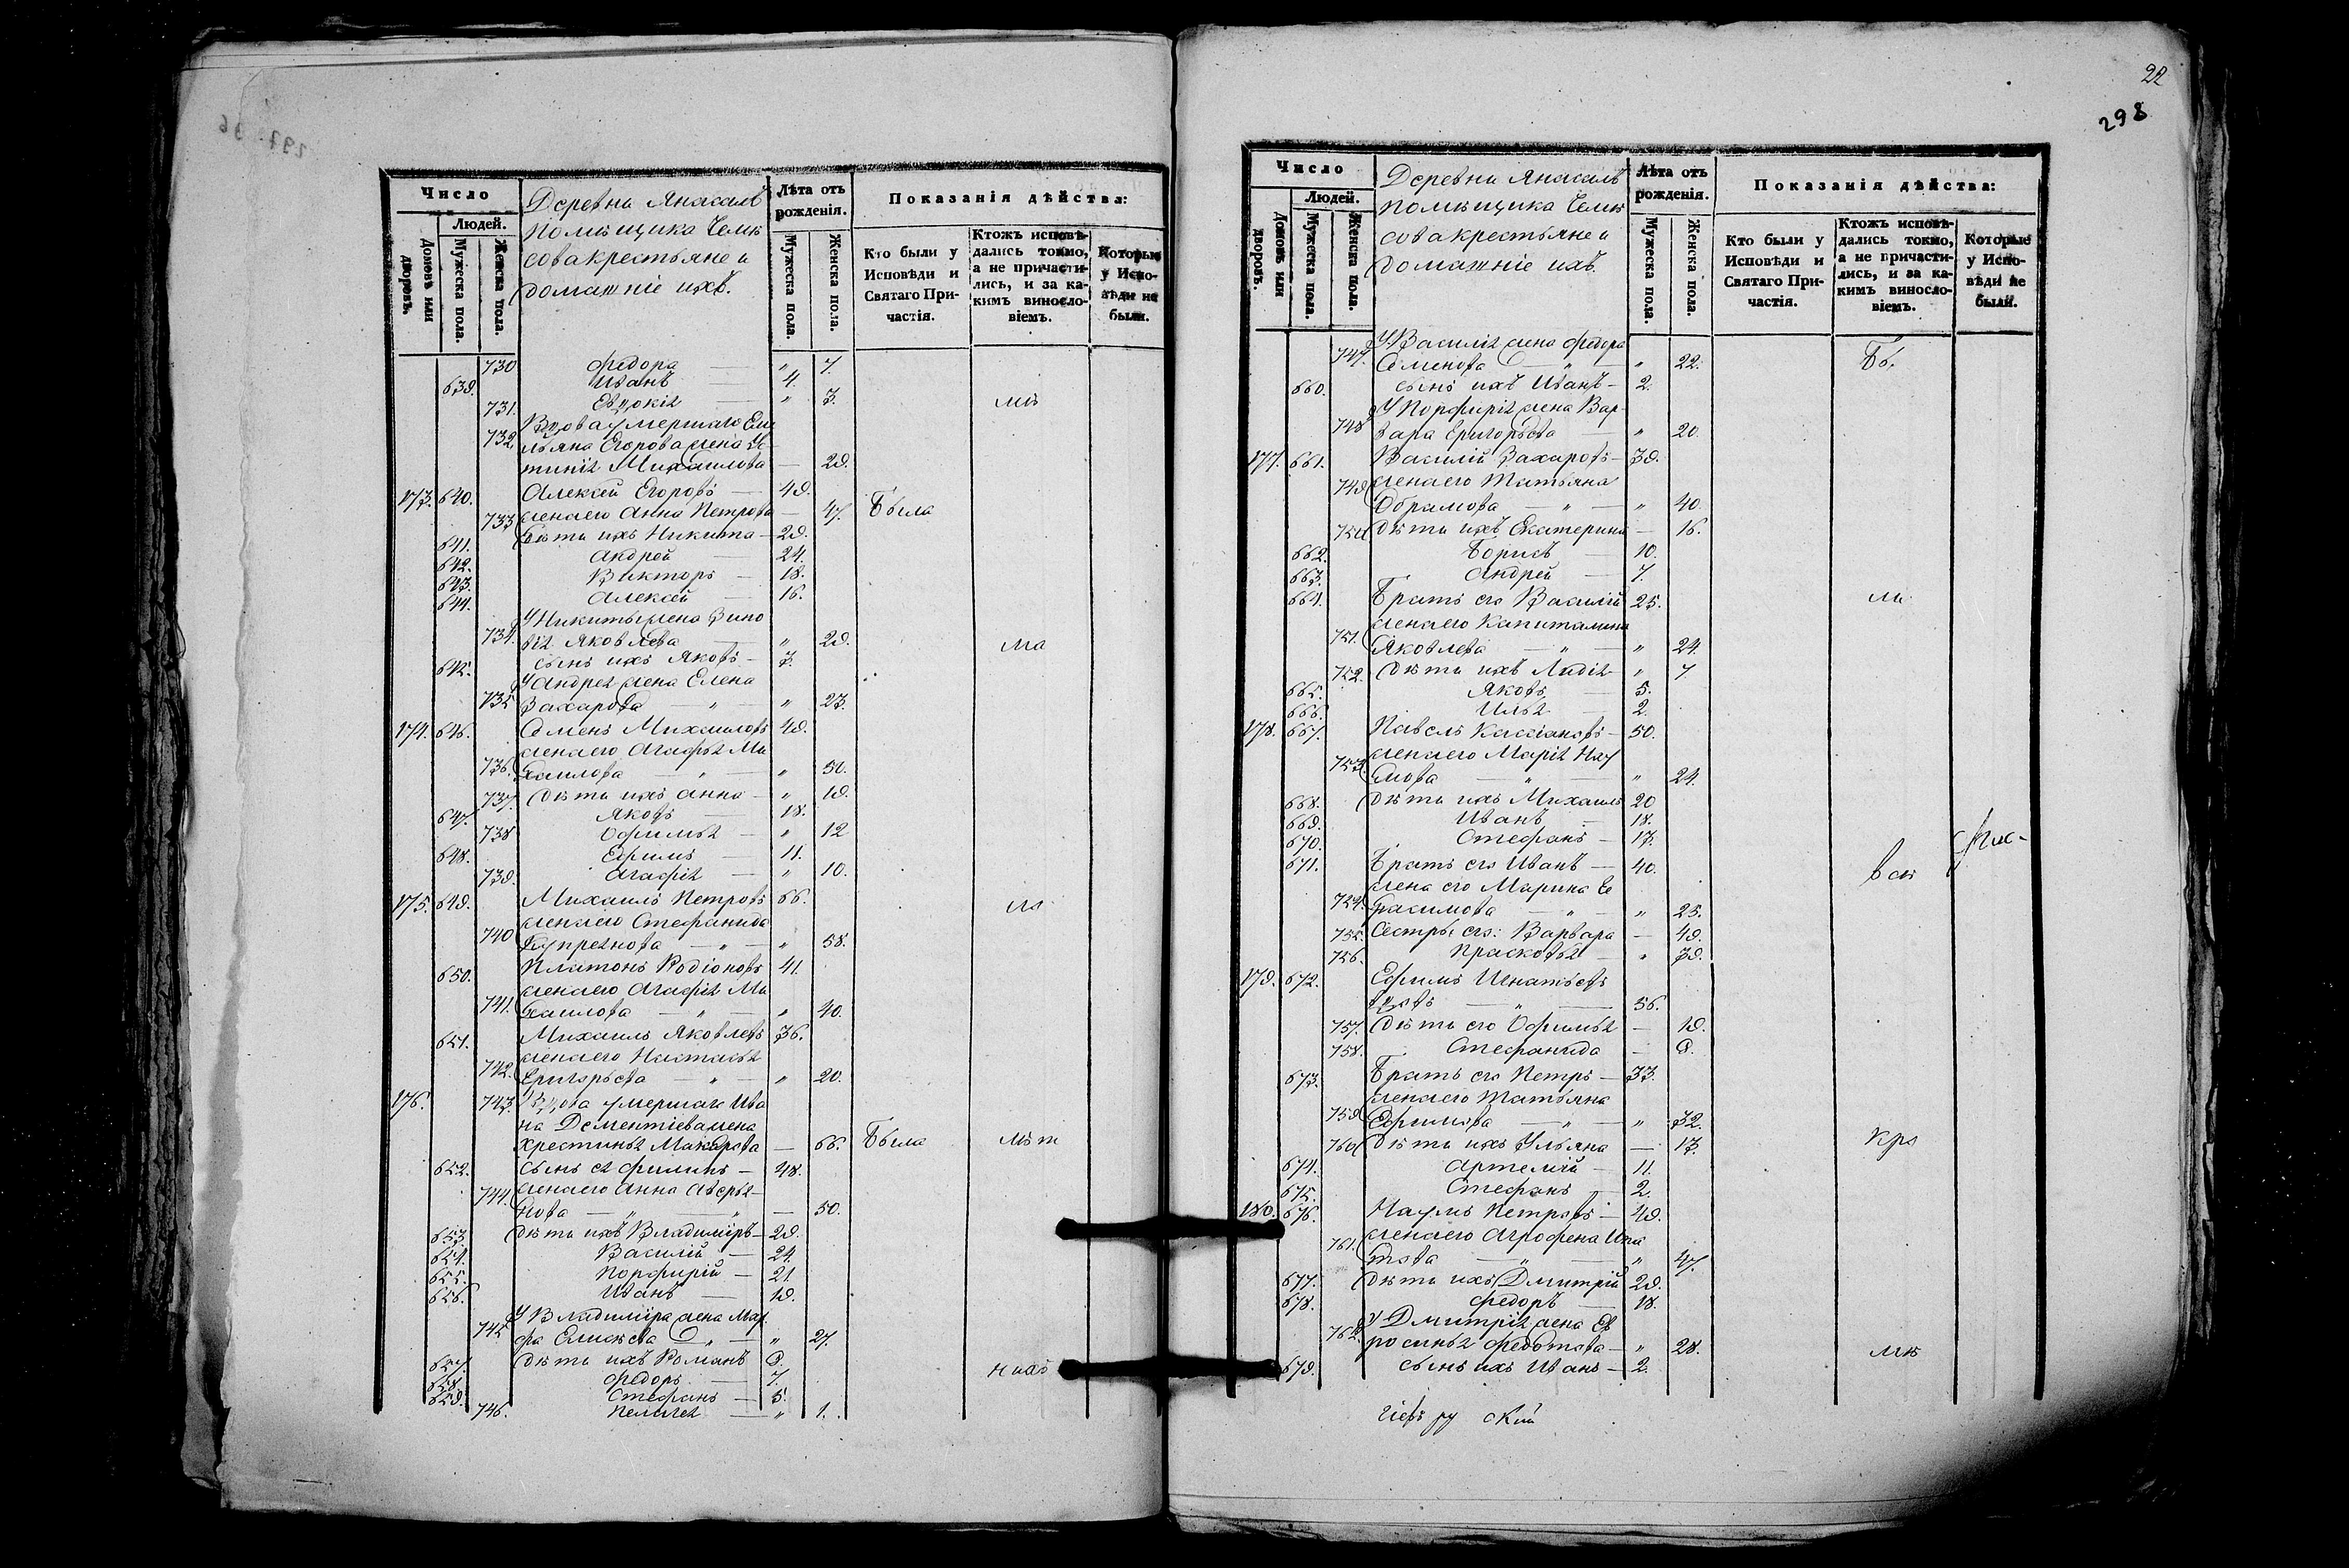 22
298
Число
Людей.
Домовъ или дворовъ.
Мужеска пола.
Женска пола.
Деревни
помѣщика
сова крестьяне и
домашніе ихъ.
Лѣта отъ рожденія.
Мужеска пола.
Женска пола.
Показанія дѣйства:
Кто были у Исповѣди и Святаго Причастія.
Ктожъ исповѣдались токмо, а не причастились, и за какимъ винословіемъ.
Которые у Исповѣди не были.
730 Федора — " 7.
639. Иванъ — 4.
731. Евдокія — " 3.
732 Вдова умершаго Еме
льяна Егорова жена Ус
тинія Михаилова — 29.
173. 640. Алексѣй Егоровъ — 49.
733 жена его Анна Петрова — 47. Была
641. Дѣти ихъ Никита — 29.
642. Андрей 24.
643. Викторъ — 18.
644. Алексѣй — 16.
У Никиты жена Зино
734. вія Яковлева — " 29. ма
645. сынъ ихъ Яковъ — 3.
У Андрея жена Елена
735 Захарова — " — " 23.
174. 646. Семенъ Михаиловъ 49.
жена его Агафья Ми
736. хаилова — " — " 50.
737. Дѣти ихъ Анна — " 19.
647. Яковъ — 18.
738 Офимья — " 12
648. Ефимъ — 11.
739. Агафія — " 10.
175. 649. Михаилъ Петровъ 66.
жена его Стефанида
740 Купреянова — " — " 58.
650. Платонъ Родіоновъ 41.
жена его Агафія Ми
741. хаилова — " — " 40.
651. Михаилъ Яковлевъ 36.
жена его Настасья
742. Григорьева — " — " 20.
176. 743. Вдова умершаго Ива
на Дементіева жена
Христинья Макарова — 66. Была
652. сынъ ея Филипъ — 48.
744. жена его Анна Аверья
нова — " — " — 50.
653. Дѣти ихъ Владиміръ — 29.
654. Василій — 24.
655. Порфирій — 21
656. Иванъ — 19.
У Владиміра жена Мар
745 фа Елисѣева — " — " 27.
657. Дѣти ихъ Романъ 9.
658. Федоръ — 7.
659. Стефанъ — 5.
746. Пелагея — " 1.
Число
Людей.
Домовъ или дворовъ.
Мужеска пола.
Женска пола.
Деревни
помѣщика
сова крестьяне и
домашніе ихъ.
Лѣта отъ рожденія.
Мужеска пола.
Женска пола.
Показанія дѣйства:
Кто были у Исповѣди и Святаго Причастія.
Ктожъ исповѣдались токмо, а не причастились, и за какимъ винословіемъ.
Которые у Исповѣди не были.
У Василія жена Федора
747. Семенова — " — " 22.
660. сынъ ихъ Иванъ — 2.
У Порфирія жена Вар
748 вара Григорьева — " 20.
177. 661. Василій Захаровъ — 39.
749 жена его Татьяна
Обрамова — " — " 40.
750 Дѣти ихъ Екатерина — 16.
662. Борисъ — 10.
663. Андрей — 7.
664. Братъ его Василій 25.
жена его Капиталина
751. Яковлева — " — " 24.
752. Дѣти ихъ Лидія " 7
665. Яковъ — 5.
666. Илья — 2.
178. 667. Павелъ Касіановъ — 50.
жена его Марія Нау
753. мова — " — " 24.
668. Дѣти ихъ Михаилъ 20
669. Иванъ — 18.
670. Стефанъ — 17.
671. Братъ его Иванъ — 40.
жена его Марина Ге
754. расимова — " — " 25.
755. Сестры его: Варвара — 49.
756. Прасковья — " 39.
179. 672. Ефимъ Игнатьевъ
вдовъ — " — 56.
757. Дѣти его Офимья — 19.
758. Стефанида — 9.
673. Братъ его Петръ — 33.
жена его Татьяна
759 Ефимова — " — " 32.
760 Дѣти ихъ Ульяна — 13.
674. Артемій — 11.
675. Стефанъ — 2.
180. 676. Наумъ Петровъ — 49.
жена его Агрофена Ипа
761. това — " — " 47.
677. Дѣти ихъ Дмитрій 29.
678. Федоръ — 18.
У Дмитрія жена Ев
762. росинья Федотова — " 28.
679. сынъ ихъ Иванъ — 2.